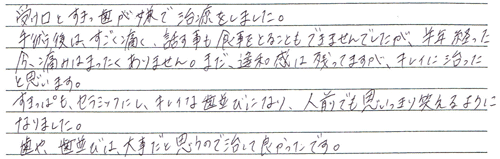 受け口とすきっ歯が嫌で治療をしました。
手術後は、すごく痛く、話す事も食事をとることもできませんでしたが、半年経った
今、痛みはまったくありません。まだ、違和感は残ってますが、キレイに治った
と思います。
すきっぱも、セラミックにし、キレイな歯並びになり、人前でも思いっきり笑えるように
なりました。
歯や、歯並びは、大事だと思うので治して良かったです。